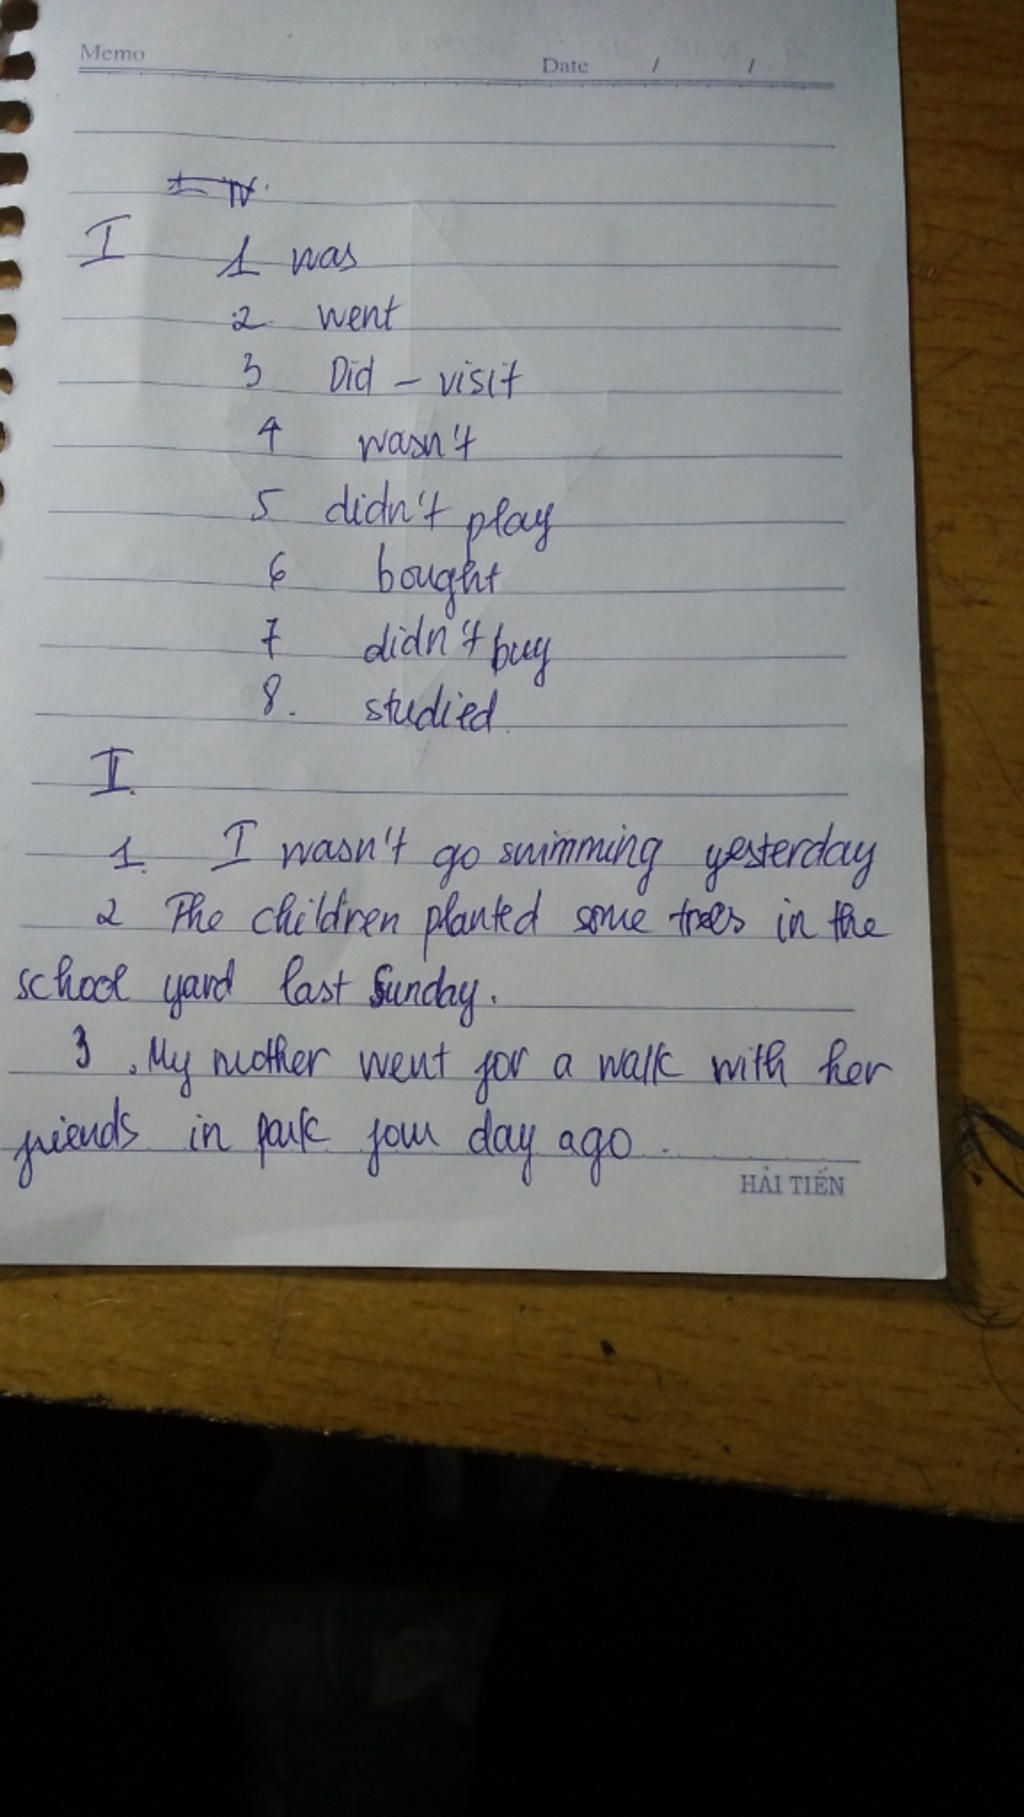 Memo
Date / /
I 1 was
2. went
3 Did - visit
4 wasn't
5 didn't play
6 bought
7 didn't buy
8. studied.
II.
1. I wasn't go swimming yesterday
2 The children planted some trees in the
school yard last Sunday.
3. My mother went for a walk with her
friends in park four day ago.
HẢI TIẾN